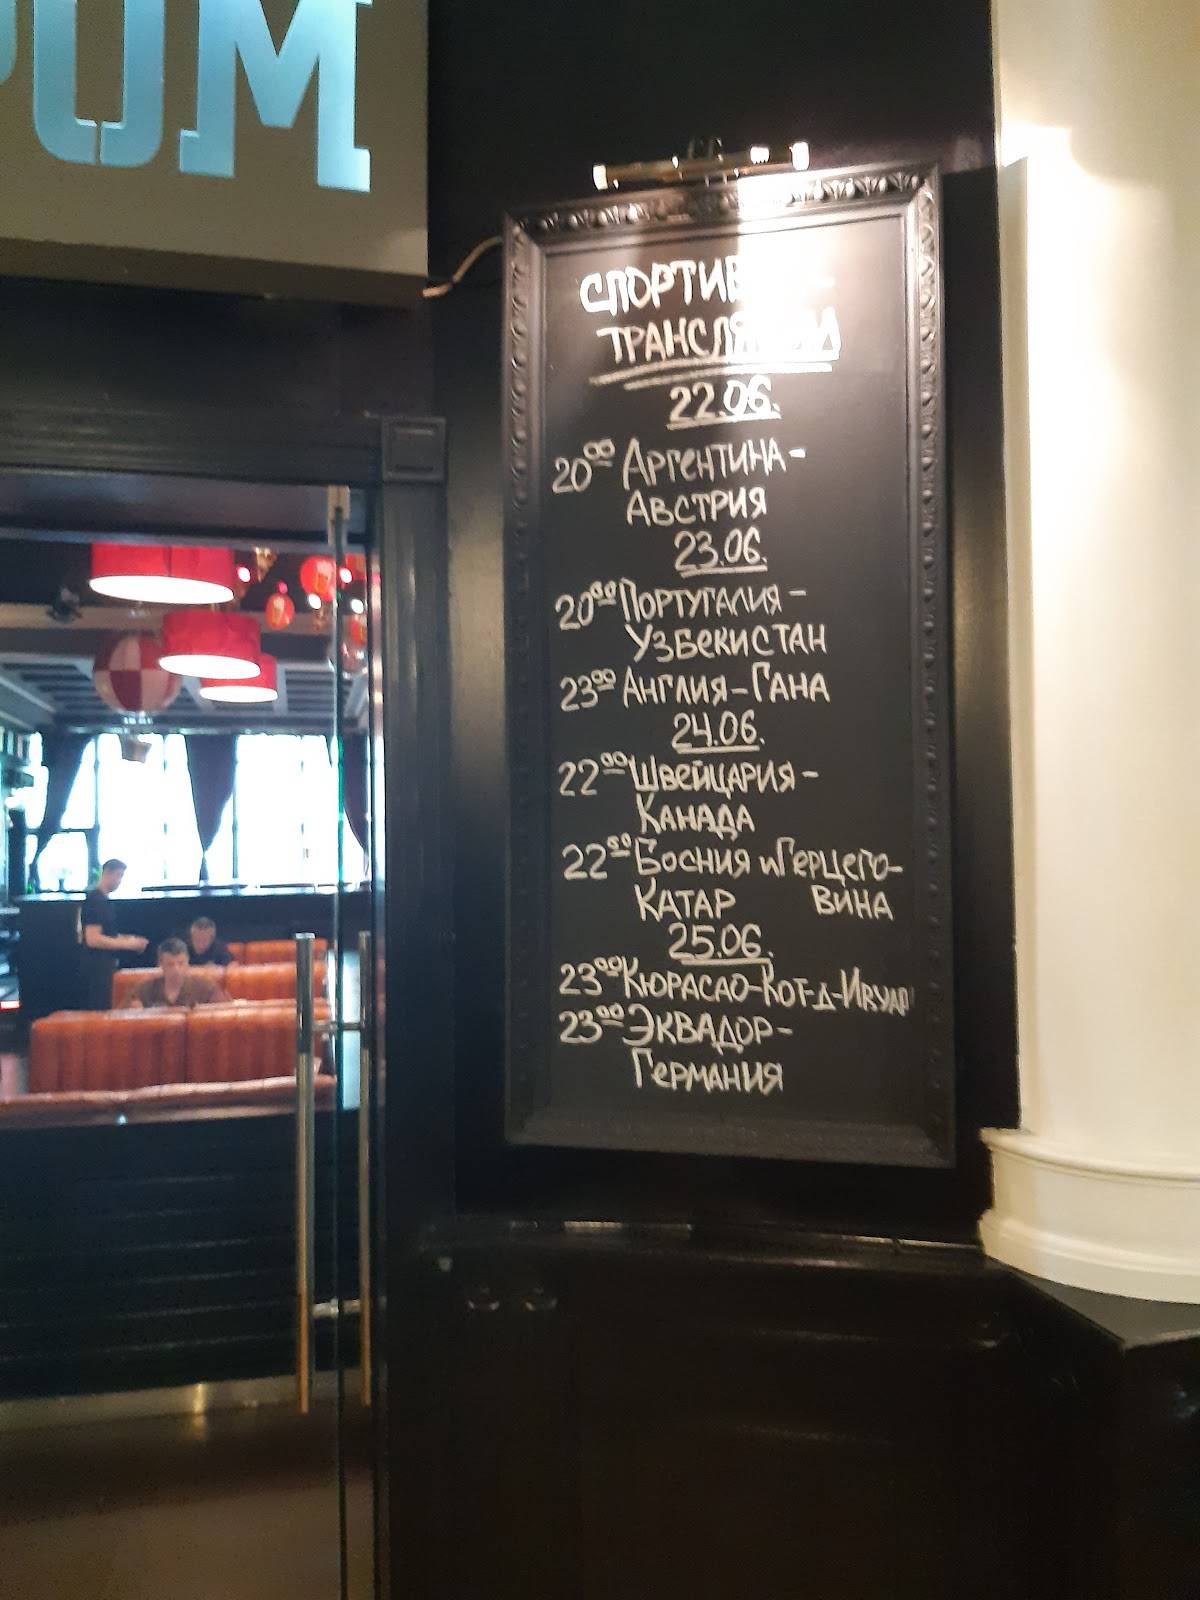 СПОРТИВНЫЕ
ТРАНСЛЯЦИИ
22.06.
20⁰⁰ АРГЕНТИНА-
АВСТРИЯ
23.06.
20⁰⁰ ПОРТУГАЛИЯ-
УЗБЕКИСТАН
23⁰⁰ АНГЛИЯ-ГАНА
24.06.
22⁰⁰ ШВЕЙЦАРИЯ-
КАНАДА
22⁰⁰ БОСНИЯ и ГЕРЦЕГО-
ВИНА
КАТАР
25.06.
23⁰⁰ КЮРАСАО-КОТ-Д-ИВУАР
23⁰⁰ ЭКВАДОР-
ГЕРМАНИЯ